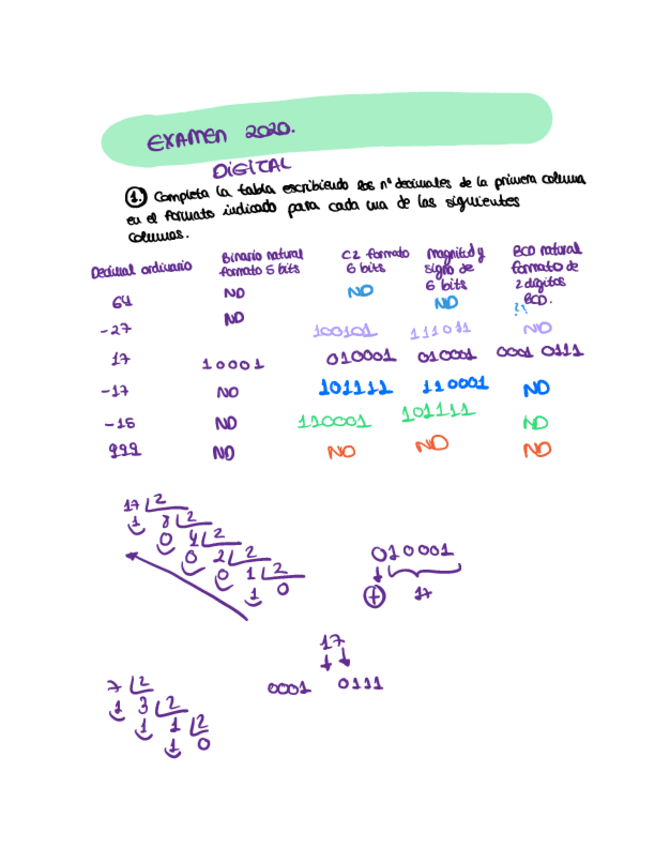 EXAMEN 2020.
DIGITAL
1. Completa la tabla escribiendo los nº decimales de la primera columna
en el formato indicado para cada una de las siguientes
columnas.
Decimal ordinario Binario natural formato 5 bits C2 formato 6 bits Magnitud y signo de 6 bits BCD natural formato de 2 dígitos BCD.
64 NO NO NO ??
-27 NO 100101 111011 NO
17 10001 010001 010001 0001 0111
-17 NO 101111 110001 NO
-15 NO 110001 101111 NO
999 NO NO NO NO
17 2
1 8 2
0 4 2
0 2 2
0 1 2
1 0
010001
+ 17
17
0001 0111
7 2
1 3 2
1 1 2
1 0